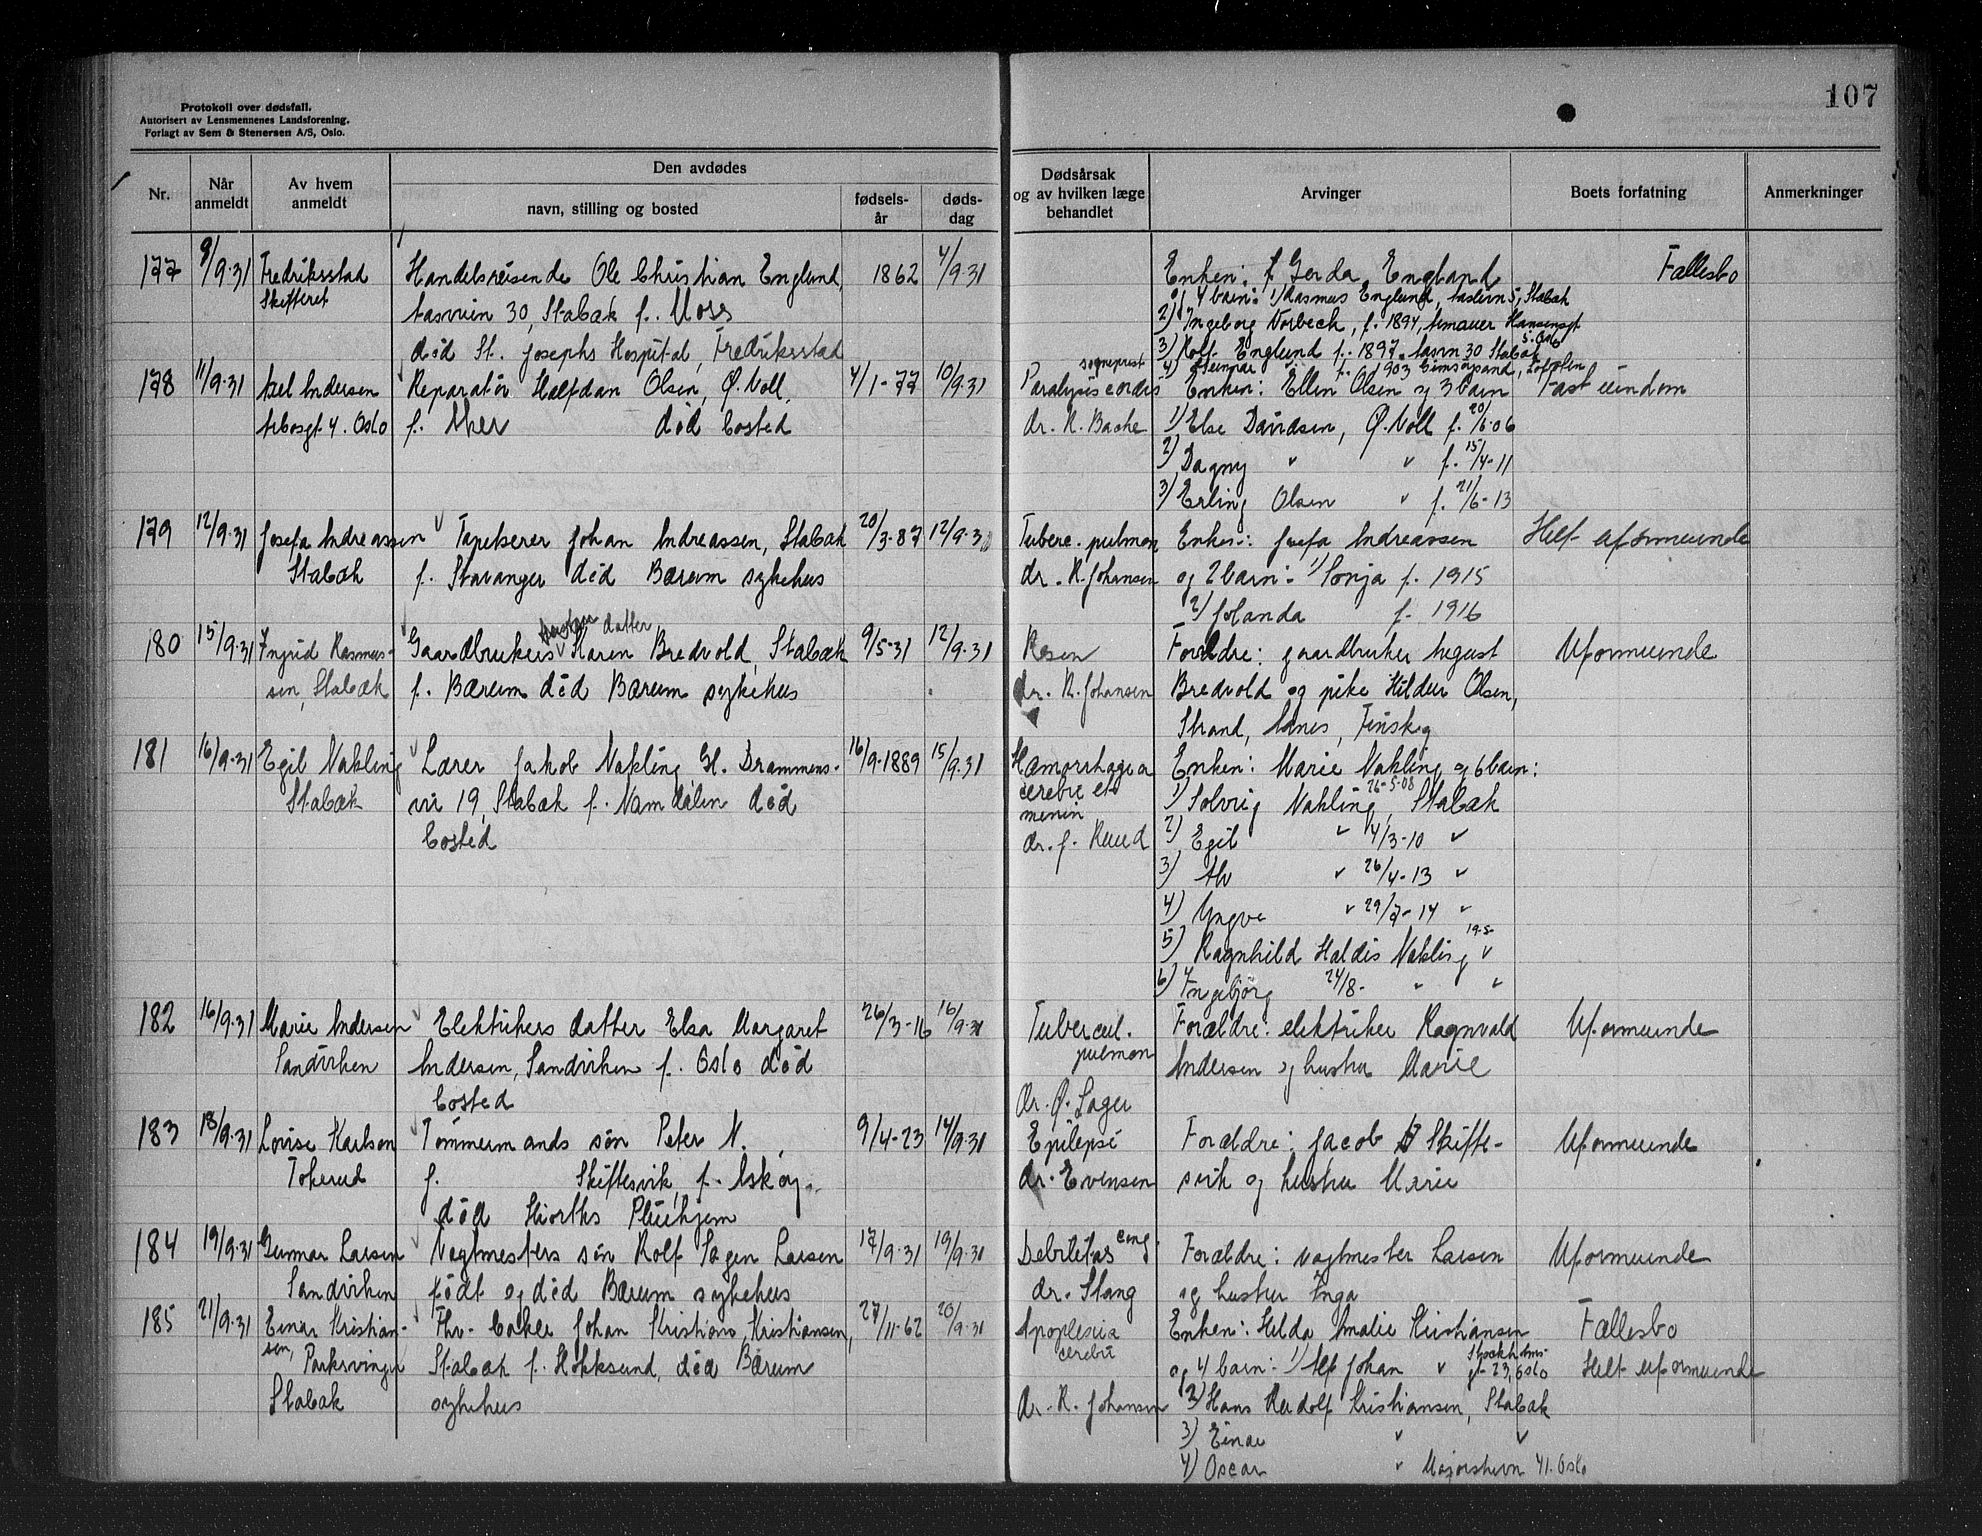 Protokoll over dødsfall.
Autorisert av Lensmennenes Landsforening.
Forlagt av Sem & Stenersen A/S, Oslo.
107
Nr.
Når anmeldt
Av hvem anmeldt
Den avdødes
navn, stilling og bosted
fødsels-år
døds-dag
Dødsårsak og av hvilken læge behandlet
Arvinger
Boets forfatning
Anmerkninger
177 9/9.31 Fredriksstad Handelsreisende Ole Christian Englund, 1862 4/9.31 Enken: Gerda Englund Fællesbo
Skifteret
30, Stabæk f. Moss
og 4 barn: 1) Rasmus Englund, 5, Stabæk
2) Ingeborg Norbech, f. 1894,
død St. Josephs Hospital, Fredriksstad
3) Rolf Englund f. 1897. 30 Stabæk
4) Steinar f. 1903 Gimsøysand, Lofoten
sogneprest
178 11/9.31 Axel Andersen Reparatør Halfdan Olsen, Ø. Voll, 4/1-77 10/9.31 Paralysis cordis Enken: Ellen Olsen og 3 barn Fast eiendom
4. Oslo f. Aker død bosted dr. K. Bache 1) Else Davidsen, Ø. Voll f. 20/6-06
2) Dagny " " f. 15/4-11
3) Erling Olsen " f. 21/6-13
179 12/9.31 Josefa Andreassen Tapetserer Johan Andreassen, Stabæk 20/3-87 12/9.31 Tuberc. pulmon Enken: Josefa Andreassen Helt uformuende
Stabæk f. Stavanger død Bærum sykehus dr. R. Johansen og 2 barn: 1) Sonja f. 1915
2) Jolanda f. 1916
180 15/9.31 Ingrid Rasmus- Gaardbrukers datter Karen Bredvold, Stabæk 9/5-31 12/9.31 Forældre: gaardbruker August Uformuende
sen, Stabæk f. Bærum død Bærum sykehus dr. R. Johansen Bredvold og pike Hildur Olsen,
Strand,
181 16/9.31 Egil Nakling Lærer Jakob Nakling Gl. Drammens- 16/9-1889 15/9.31 Hæmorrhagia Enken: Marie Nakling og 6 barn:
Stabæk vei 19, Stabæk f. Namdalen død cerebri et 1) Solveig Nakling, 26-5-08 Stabæk
menin
bosted dr. J. Ruud 2) Egil " 4/3-10 "
3) Alv " 26/4-13 "
4) Yngve " 29/7-14 "
5) Ragnhild Haldis Nakling 19-5- "
6) Ingebjørg 24/8- " "
182 16/9.31 Marie Andersen Elektrikers datter Elsa Margaret 26/3-16 16/9.31 Tubercul. Forældre: elektriker Ragnvald Uformuende
Sandviken Andersen, Sandviken f. Oslo død pulmon Andersen og hustru Marie
bosted dr. Ø. Lager
183 18/9.31 Lovise Karlson Tømmermands søn Peter N. 9/4-23 14/9.31 Epilepsi Forældre: Jacob Skifte- Uformuende
Tokerud J. Skiftesvik f. Askøy. dr. Evensen svik og hustru Marie
død Hiorths Pleiehjem
184 19/9.31 Gunnar Larsen Vagtmesters søn Rolf Sagen Larsen 17/9.31 19/9.31 Debilitas cong. Forældre: vagtmester Larsen Uformuende
Sandviken født og død Bærum sykehus dr. Stang og hustru Inga
185 21/9.31 Einar Kristian- Fhv. baker Johan Kristian Kristiansen, 27/11-62 20/9.31 Apoplexia Enken: Hilda Amalie Kristiansen Fællesbo
sen, Parksvingen Stabæk f. Hokksund, død Bærum cerebri og 4 barn: 1) Alf Johan " Stockholms- gt. 23, Oslo Helt uformuende
Stabæk sykehus dr. R. Johansen 2) Hans Rudolf Kristiansen, Stabæk
3) Einar " "
4) Oscar " Majorstuvn 41. Oslo